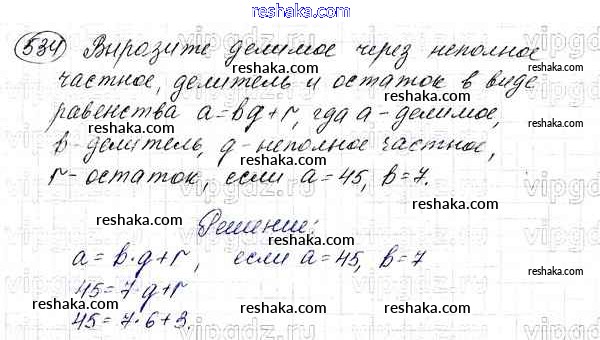 reshaka.com
534 Вырозите делимое через неполное
reshaka.com
частное, делитель и остаток в виде
reshaka.com
равенства a=bq+r, где a-делимое,
reshaka.com
b-делитель, q-неполное частное,
reshaka.com
r-остаток, если a=45, b=7.
reshaka.com
Решение:
reshaka.com
a=b·q+r, если a=45, b=7
reshaka.com
45=7·q+r
reshaka.com
45=7·6+3.
reshaka.com
vipgdz.ru